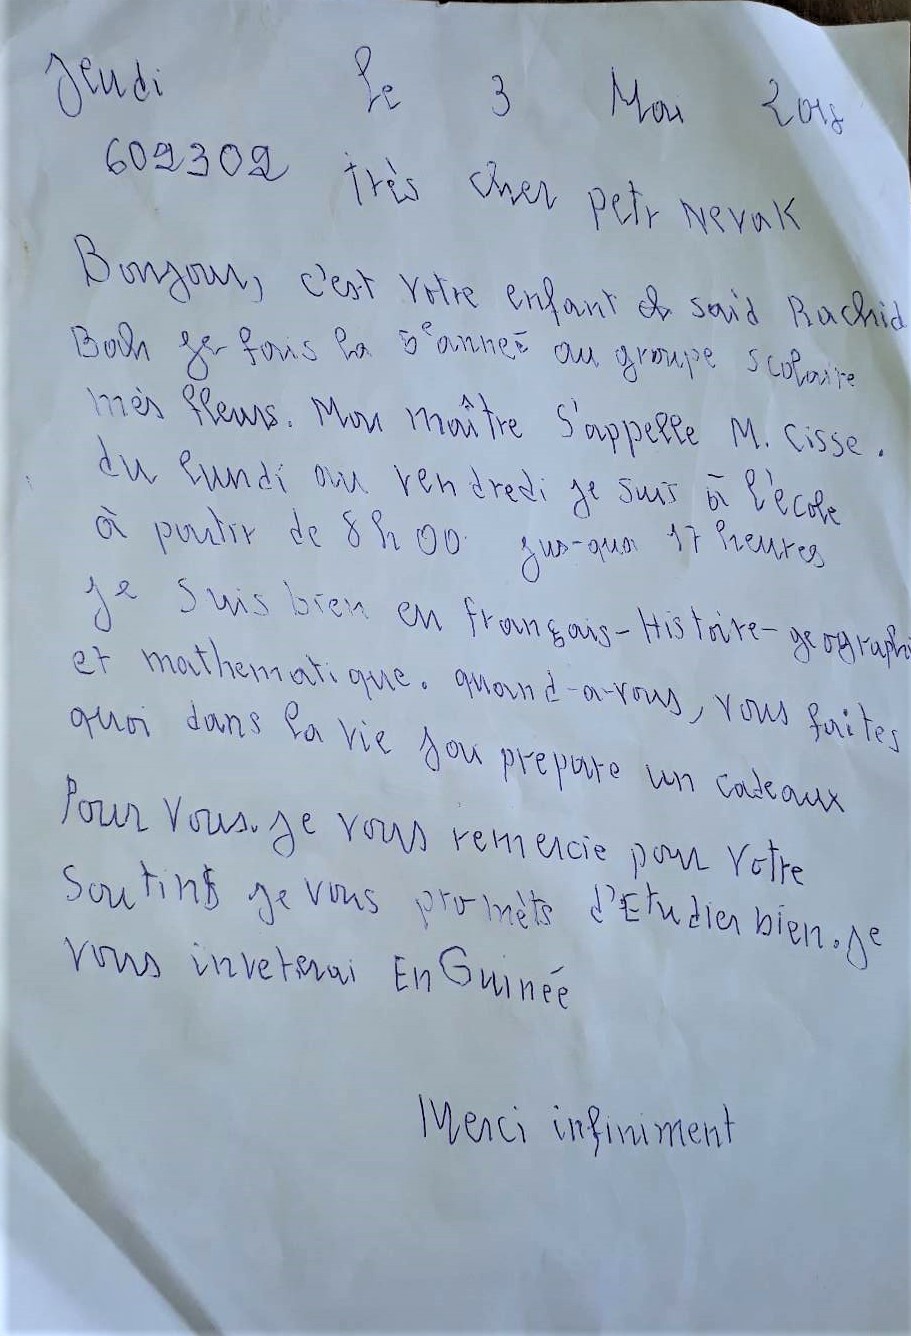 Jeudi le 3 Mai 2018
602302 très cher petr Nevak
Bonjour, c'est votre enfant said Rachid
Bah je fais la 5e anneé au groupe scolaire
mes fleurs. Mon maître s'appelle M. Cisse.
du lundi au vendredi je suis à l'école
à partir de 8h00 jus-qua 17 heures
je suis bien en français-Histoire-geographi
et mathematique. quand-a-vous, vous faites
quoi dans la vie j'ou prepare un cadeaux
Pour vous. je vous remercie pour votre
soutins je vous promèts d'Etudier bien. je
vous inveterai En Guinée
Merci infiniment